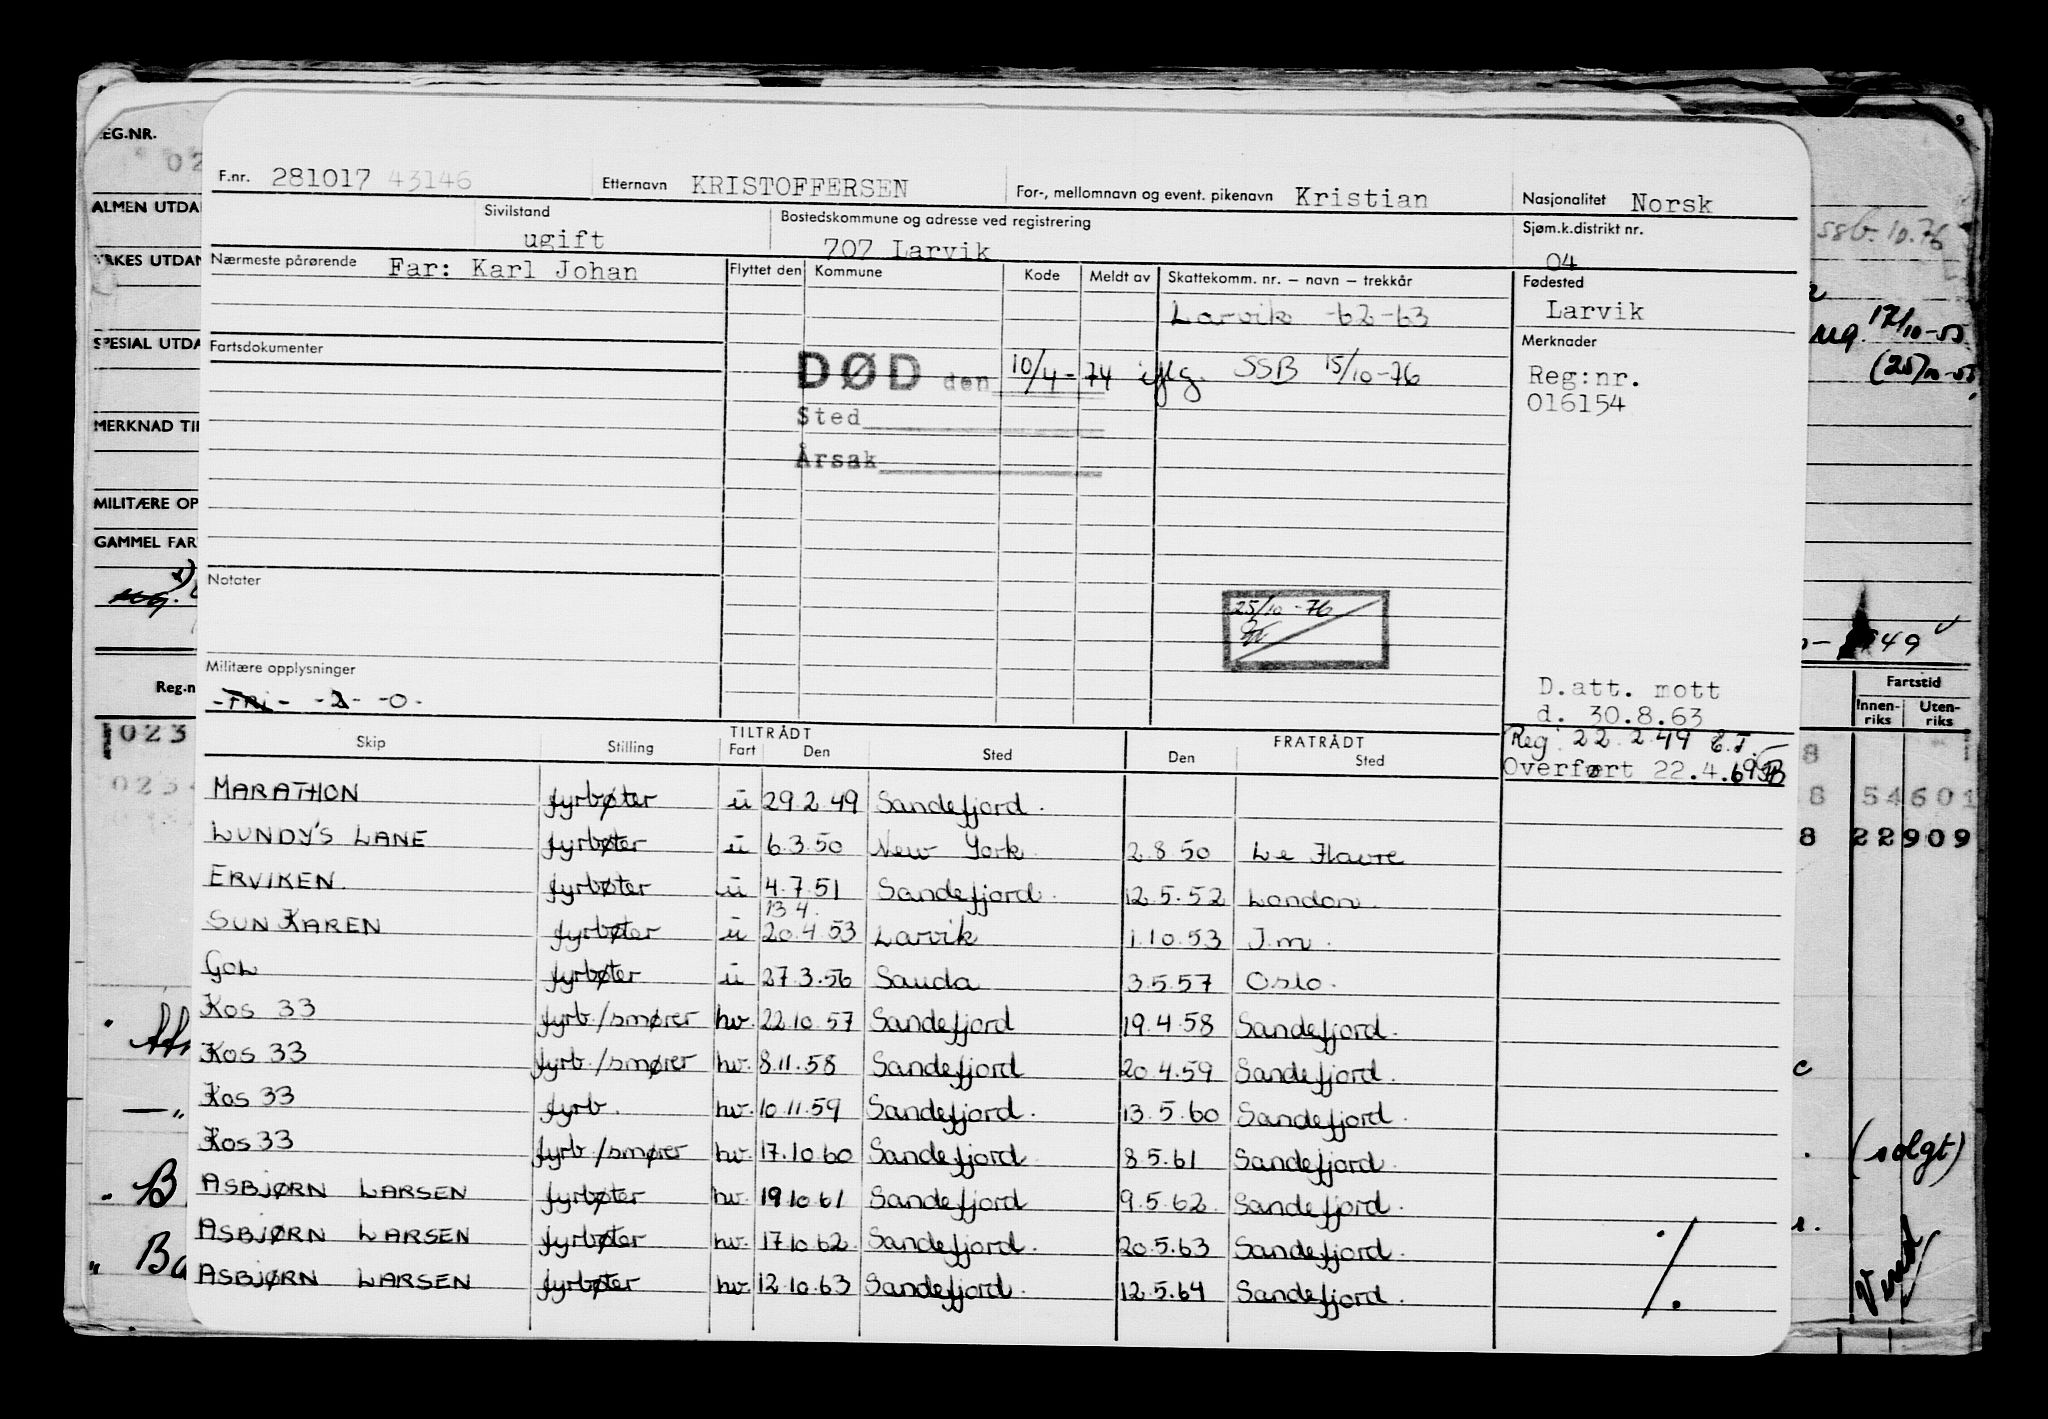 F.nr. 281017 43146 Etternavn KRISTOFFERSEN For-, mellomnavn og event. pikenavn Kristian Nasjonalitet Norsk
Sivilstand ugift Bostedskommune og adresse ved registrering 707 Larvik Sjøm.k.distrikt nr. 04
Nærmeste pårørende Far: Karl Johan Flyttet den Kommune Kode Meldt av Skattekomm. nr. – navn – trekkår Fødested
Larvik -62-63 Larvik
Fartsdokumenter Merknader
DØD den 10/4-74 iflg. SSB 15/10-76 Reg:nr.
016154
Sted
Årsak
Notater
25/10-76
Militære opplysninger
-FRI- -2- -0-
D.att. mott
d. 30.8.63
Reg 22.2.49 E.T.
Overført 22.4.69
TILTRÅDT FRATRÅDT
Skip Stilling Fart Den Sted Den Sted
MARATHON fyrbøter u 29.2.49 Sandefjord.
LUNDY'S LANE fyrbøter u 6.3.50 New York 2.8.50 Le Havre
ERVIKEN. fyrbøter u 4.7.51 Sandefjord. 12.5.52 London.
13.4.
SUN KAREN fyrbøter u 20.4.53 Larvik 1.10.53 I.m.
GOL fyrbøter u 27.3.56 Sauda 3.5.57 Oslo.
KOS 33 fyrb./smører hv. 22.10.57 Sandefjord 19.4.58 Sandefjord.
KOS 33 fyrb./smører hv. 8.11.58 Sandefjord 20.4.59 Sandefjord.
KOS 33 fyrb. hv. 10.11.59 Sandefjord. 13.5.60 Sandefjord.
KOS 33 fyrb/smører hv. 17.10.60 Sandefjord. 8.5.61 Sandefjord.
ASBJØRN LARSEN fyrbøter hv. 19.10.61 Sandefjord. 9.5.62. Sandefjord.
ASBJØRN LARSEN fyrbøter hv. 17.10.62. Sandefjord. 20.5.63 Sandefjord.
ASBJØRN LARSEN fyrbøter hv. 12.10.63 Sandefjord. 12.5.64 Sandefjord.
./.
EG.NR.
02
ALMEN UTDA
YRKES UTDAN
SPESIAL UTDA
MERKNAD TIL
MILITÆRE OP
GAMMEL FAR
Reg.n
023
023
B
Ba
SSB. 10.76
17/10-55
(25/10-55
49
Fartstid
Innen-riks Uten-riks
8
8 54601
8 22909
(solgt)